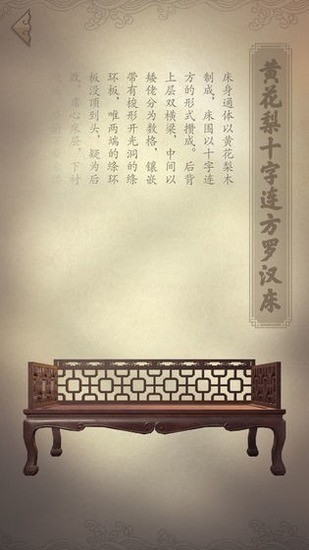 黄花梨十字连方罗汉床
床身通体以黄花梨木
制成，床围以十字连
方的形式攒成。后背
上层双横梁，中间以
矮佬分为数格，镶嵌
带有梭形开光洞的绦
环板，唯两端的绦环
板没顶到头，疑为后
做。席心床屉，下衬